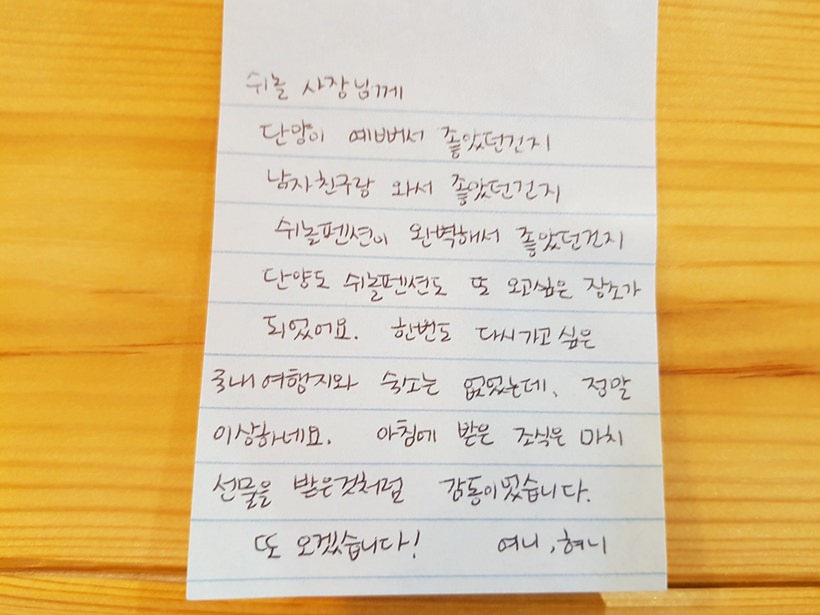 쉬놀 사장님께
단양이 예뻐서 좋았던건지
남자친구랑 와서 좋았던건지
쉬놀펜션이 완벽해서 좋았던건지
단양도 쉬놀펜션도 또 오고싶은 장소가
되었어요. 한번도 다시가고 싶은
국내여행지와 숙소는 없었는데, 정말
이상하네요. 아침에 받은 조식은 마치
선물을 받은것처럼 감동이었습니다.
또 오겠습니다! 여니, 혀니